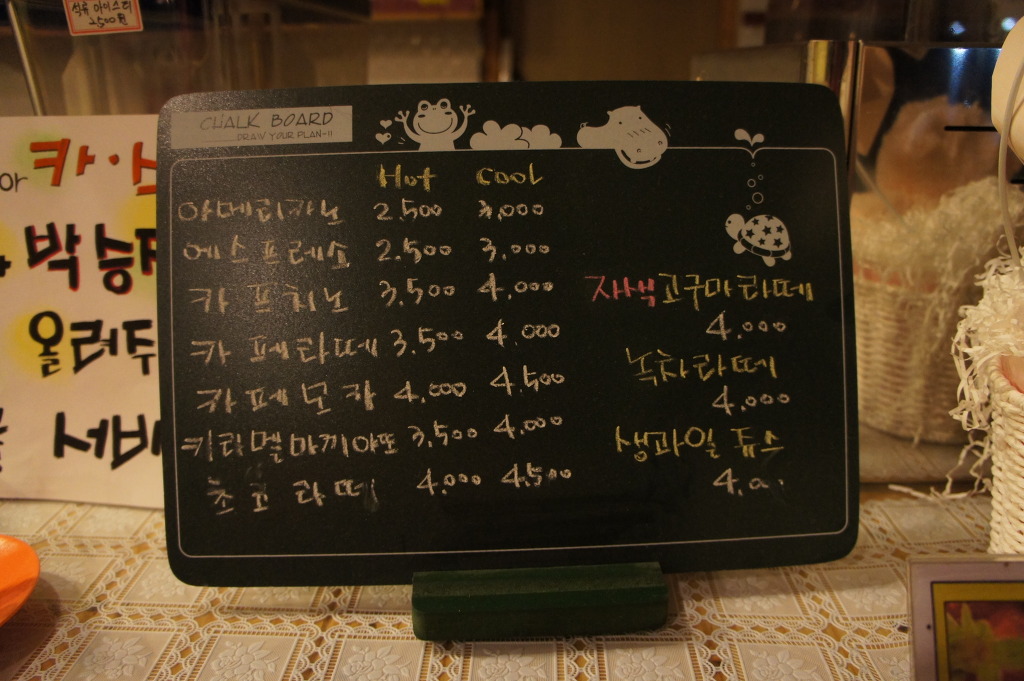 석류 아이스티
2500원
CHALK BOARD
DRAW YOUR PLAN-!!
Hot Cool
아메리카노 2.500 3,000
에스프레소 2.500 3.000
카프치노 3.500 4.000
카페라떼 3.500 4.000
카페모카 4.000 4.500
키라멜마끼아또 3.500 4.000
초코라떼 4.000 4.500
자색고구마라떼
4.000
녹차라떼
4.000
생과일 쥬스
4.0.
아 카·스
박승
올려주
서비